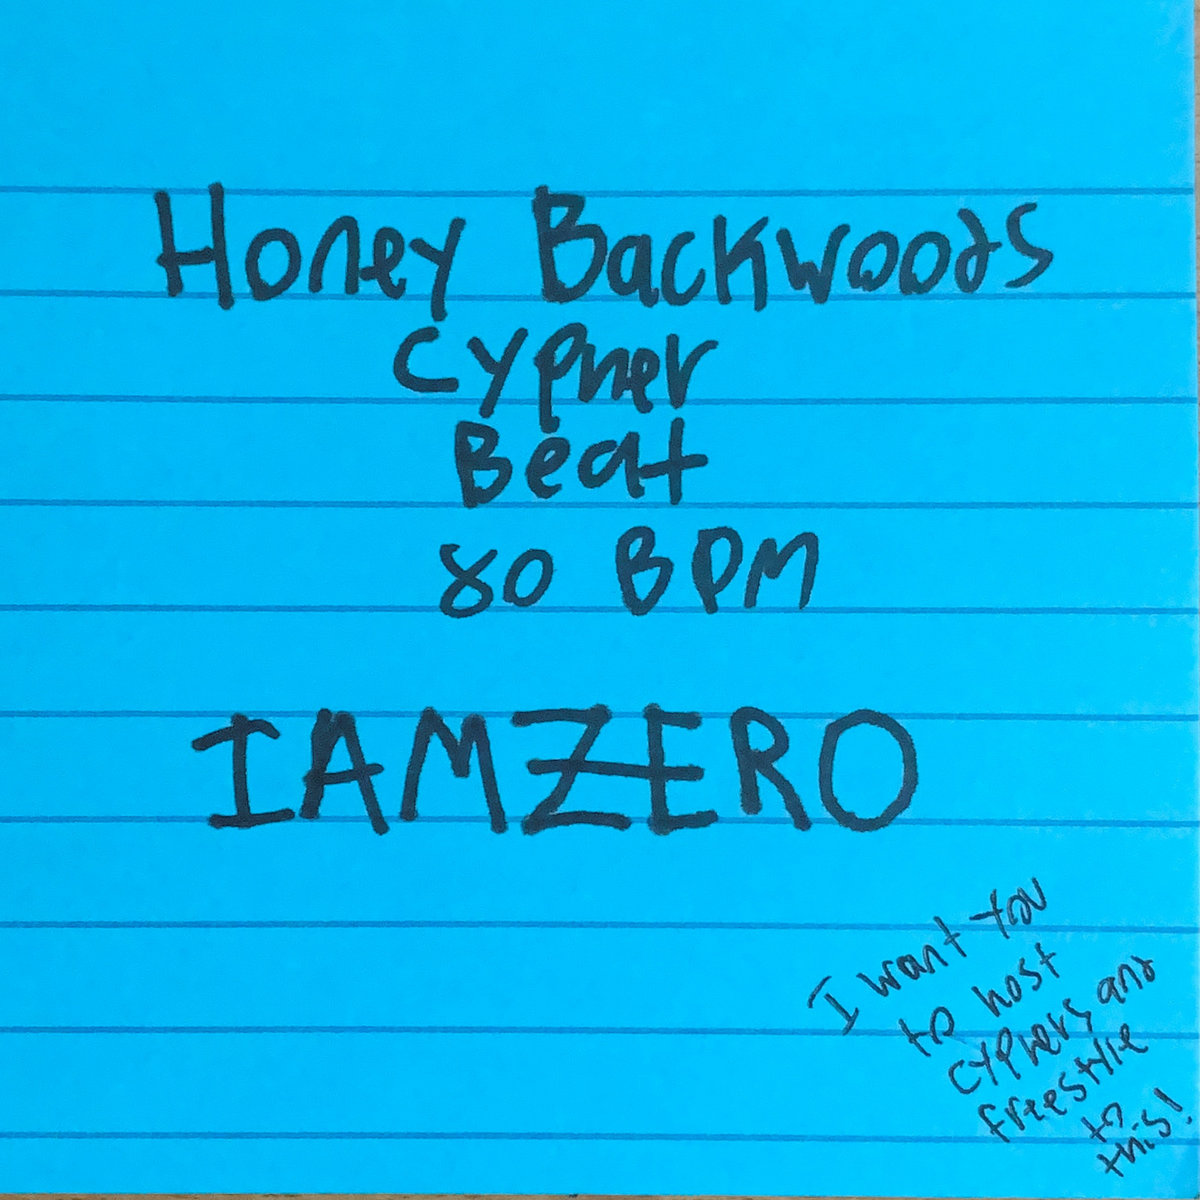 Honey Backwoods
Cypher
Beat
80 BPM
IAMZERO
I want you
to host
cyphers and
freestyle
to
this!